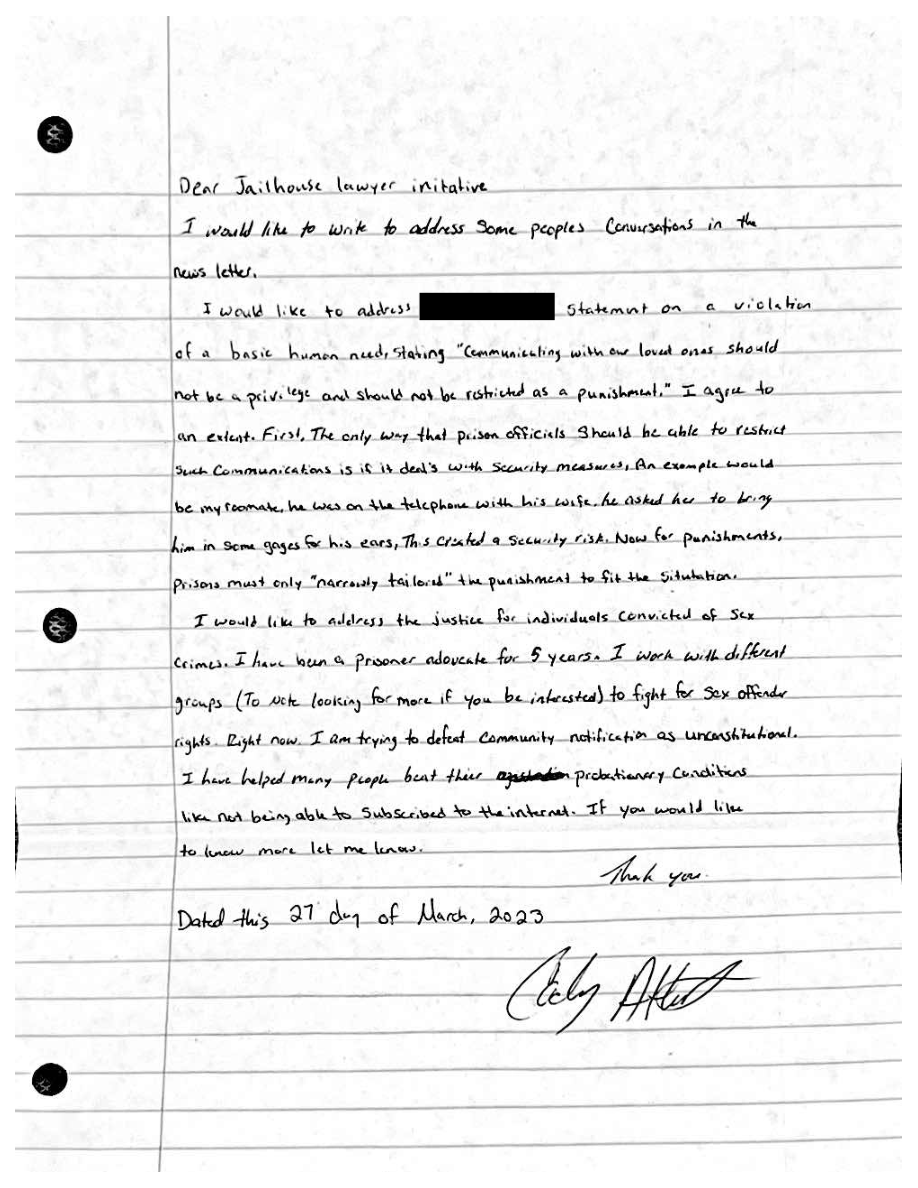 Dear Jailhouse lawyer initative
I would like to write to address Some peoples Conversations in the
news letter.
I would like to address Statement on a violation
of a basic human need, Stating "Communicating with our loved ones should
not be a privilege and should not be restricted as a punishment." I agree to
an extent. First, The only way that prison officials Should be able to restrict
Such Communications is if it deal's with Security measures, An example would
be my roomate, he was on the telephone with his wife, he asked her to bring
him in some gages for his ears, This created a security risk. Now for punishments,
Prisons must only "narrowly tailored" the punishment to fit the Situtation.
I would like to address the justice for individuals convicted of Sex
Crimes. I have been a prisoner advocate for 5 years. I work with different
groups (To note looking for more if you be interested) to fight for Sex offender
rights. Right now. I am trying to defeat Community notification as unconstitutional.
I have helped many people beat their probationary Conditions
like not being able to Subscribed to the internet. If you would like
to know more let me know.
Thank you.
Dated this 27 day of March, 2023